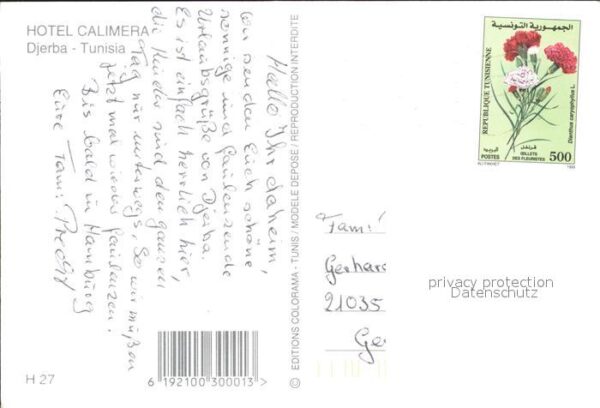 HOTEL CALIMERA
Djerba - Tunisia
Hallo Ihr daheim,
wir senden Euch schöne
sonnige und faulenzende
Urlaubsgrüße von Djerba.
Es ist einfach herrlich hier,
die Kinder sind den ganzen
Tag nur unterwegs. So wir müßen
jetzt mal wieder faulenzen.
Bis bald in Hamburg
Eure Fam.
© EDITIONS COLORAMA - TUNIS / MODELE DEPOSE / REPRODUCTION INTERDITE
الجمهورية التونسية
REPUBLIQUE TUNISIENNE
Dianthus caryophyllus L.
قرنفل
ŒILLETS
DES FLEURISTES
POSTES
البريد
500
Fam.
Gerhar
21035
Ge
privacy protection
Datenschutz
H 27
6 192100 300013 >